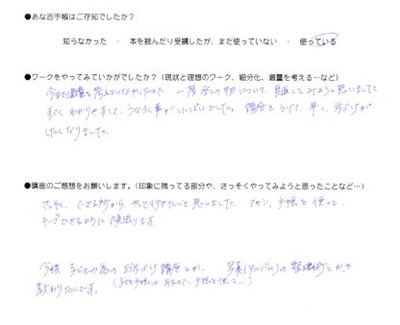 ●あな吉手帳はご存知でしたか？
知らなかった ・ 本を読んだり受講したが、まだ使っていない ・ 使っている
●ワークをやってみていかがでしたか？（現状と理想のワーク、細分化、適量を考える…など）
今まで適量を考えていなかったので、一度全ての物について、見直してみようと思いました
すごくわかりやすくて、うなずく事がいっぱいでした。講座をうけて、早く、片づけが
したくなりました。
●講座のご感想をお願いします。（印象に残ってる部分や、さっそくやってみようと思ったことなど…）
さっそく、できる所からやって行きたいと思いました 手帳を使って、
キープできるように頑張ります。
今後 子どもの為のお片づけ講座とか、写真(アルバム)の整理術とかも
教わりたいです。